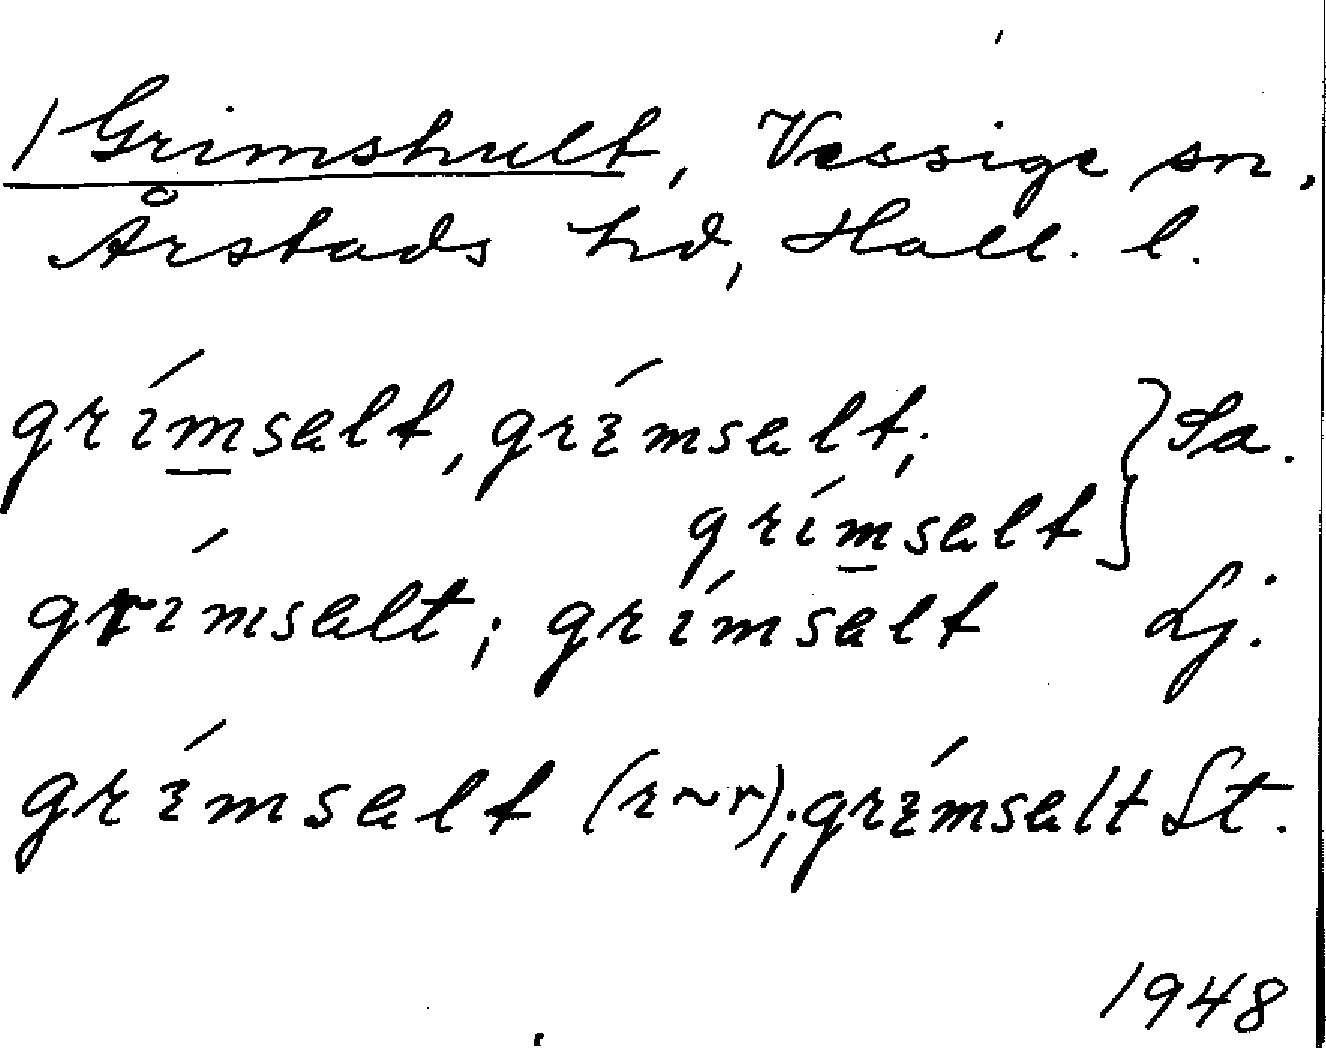 / Grimshult, Vessige sn,
Årstads hd, Hall. l.
grímsalt, grímsalt; } Sa.
grímsalt
grímsalt; grímsalt Lj.
grímsalt (r~r); grímsalt St.
1948